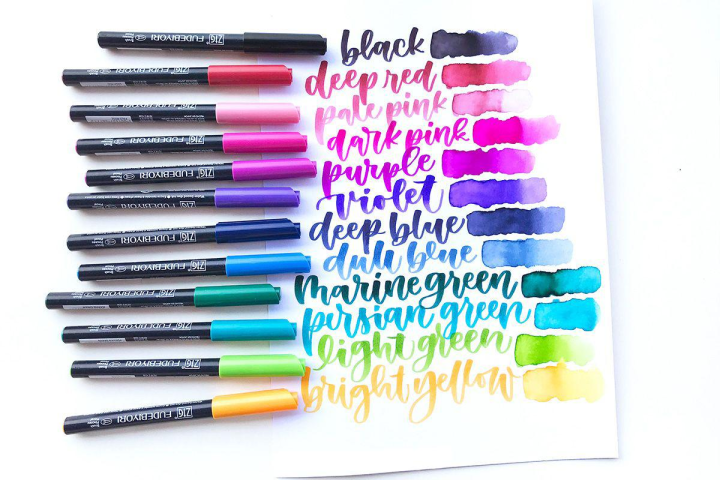 black
deep red
pale pink
dark pink
purple
violet
deep blue
dull blue
marine green
persian green
light green
bright yellow
ZIG FUDEBIYORI
ZIG FUDEBIYORI
ZIG FUDEBIYORI
ZIG FUDEBIYORI
ZIG FUDEBIYORI
ZIG FUDEBIYORI
ZIG FUDEBIYORI
ZIG FUDEBIYORI
ZIG FUDEBIYORI
ZIG FUDEBIYORI
ZIG FUDEBIYORI
ZIG FUDEBIYORI